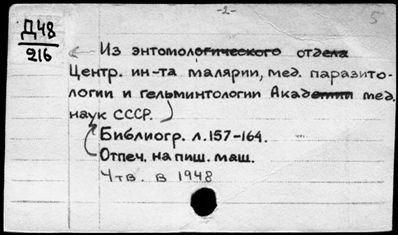 -2-
5
Д48
216
Из энтомологического отдела
Центр. ин-та малярии, мед. паразито-
логии и гельминтологии Академии мед.
наук СССР.
Библиогр. л.157-164.
Отпеч. на пиш. маш.
Утв. в 1948